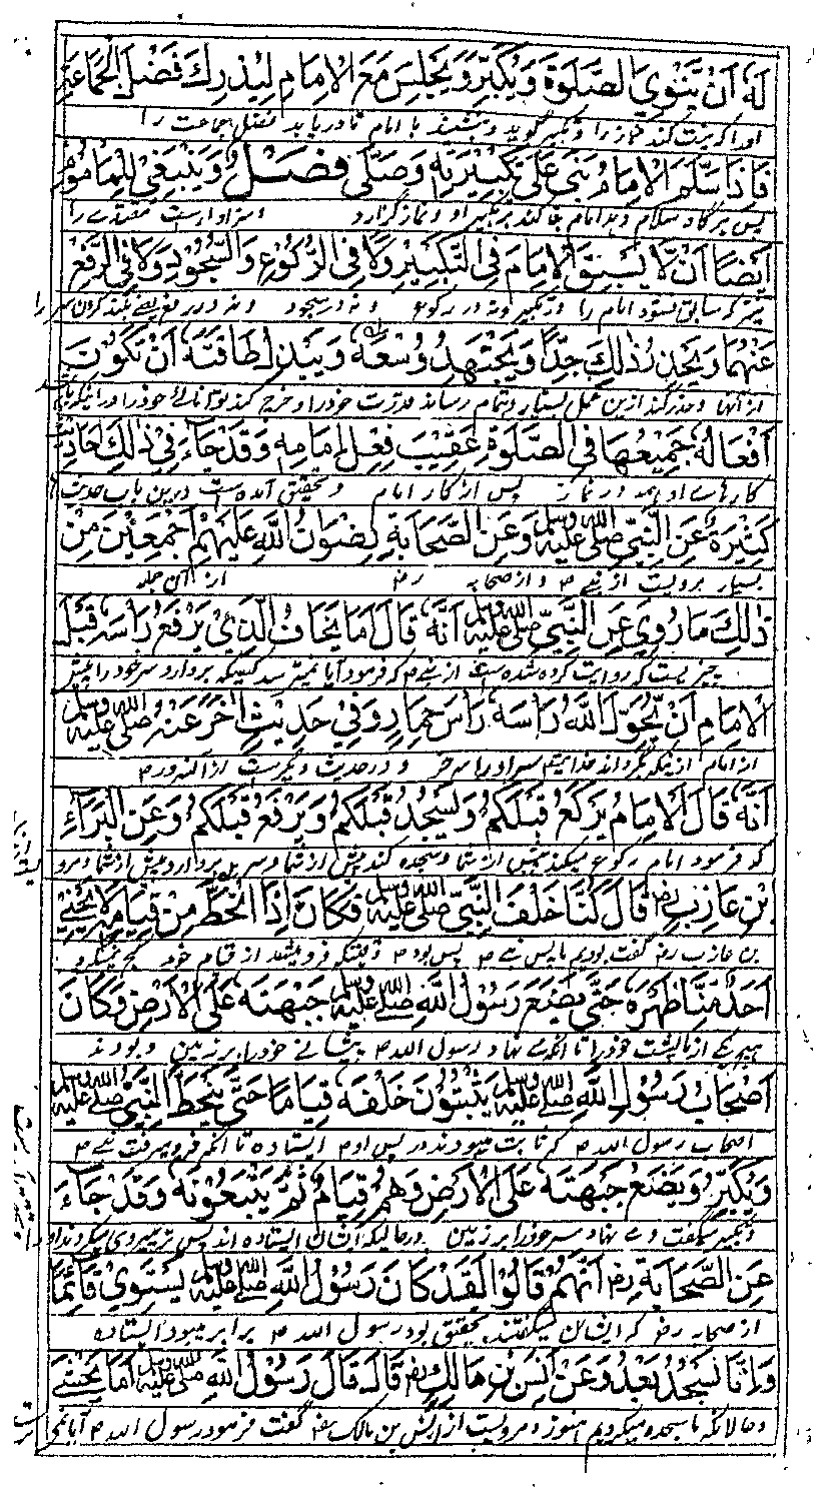 لَهُ اَنْ يَنْوِيَ الصَّلٰوةَ وَيُكَبِّرَ وَيَجْلِسَ مَعَ الْاِمَامِ لِيُدْرِكَ فَضْلَ الْجَمَاعَةِ
اورا که نیت کند نماز را و تکبیر گوید و بنشیند با امام تا دریابد فضل جماعت را
فَاِذَا سَلَّمَ الْاِمَامُ بَنٰى عَلٰى تَكْبِيْرَتِهٖ وَصَلّٰى فَصْلٌ وَيَنْبَغِيْ لِلْمَامُوْمِ
پس هرگاه سلام دهد امام بنا کند بر تکبیر او و نماز گزارد و سزاوارست مقتدی را
اَيْضًا اَنْ لَّا يَسْبِقَ الْاِمَامَ فِي التَّكْبِيْرِ وَلَا فِي الرُّكُوْعِ وَالسُّجُوْدِ وَلَا فِي الرَّفْعِ
که سابق نشود امام را در تکبیر و نه در رکوع و نه در سجود و نه در رفع یعنی بلند کردن سر را
عَنْهُمَا وَيَحْذَرُ ذٰلِكَ جِدًّا وَيَجْتَهِدُ وُسْعَهٗ وَيَبْذُلُ طَاقَتَهٗ اَنْ تَكُوْنَ
از آنها و حذر کند ازین عمل بسیار و تمام رساند قدرت خود را و خرج کند توانائی خود را و اینکه باشد
اَفْعَالُهٗ جَمِيْعُهَا فِي الصَّلٰوةِ عَقِيْبَ فِعْلِ اِمَامِهٖ وَقَدْ جَآءَ فِيْ ذٰلِكَ اَحَادِيْثُ
کارهای او همه در نماز پس از کار امام و تحقیق آمده است درین باب حدیث ها
كَثِيْرَةٌ عَنِ النَّبِيِّ صَلَّى اللهُ عَلَيْهِ وَسَلَّمَ وَعَنِ الصَّحَابَةِ رِضْوَانُ اللهِ عَلَيْهِمْ اَجْمَعِيْنَ مِنْ
بسیار مرویست از نبی ص و از صحابه رض از آن جمله
ذٰلِكَ مَا رُوِيَ عَنِ النَّبِيِّ صَلَّى اللهُ عَلَيْهِ وَسَلَّمَ اَنَّهٗ قَالَ اَمَا يَخَافُ الَّذِيْ يَرْفَعُ رَاْسَهٗ قَبْلَ
چیزیست که روایت کرده شده است از نبی ص که فرمود آیا نمیترسد کسیکه بردارد سر خود را پیش
الْاِمَامِ اَنْ يُّحَوِّلَ اللهُ رَاْسَهٗ رَاْسَ حِمَارٍ وَفِيْ حَدِيْثٍ اٰخَرَ عَنْهُ صَلَّى اللهُ عَلَيْهِ وَسَلَّمَ
از امام ازینکه بگرداند خدایتعالی سر او را سر خر و در حدیث دیگرست از آنسرور ص
اَنَّهٗ قَالَ الْاِمَامُ يَرْكَعُ قَبْلَكُمْ وَيَسْجُدُ قَبْلَكُمْ وَيَرْفَعُ قَبْلَكُمْ وَعَنِ الْبَرَاءِ
که فرمود امام رکوع میکند پیش از شما و سجده کند پیش از شما و سر بردارد پیش از شما و مرو
ابْنِ عَازِبٍ رض قَالَ كُنَّا خَلْفَ النَّبِيِّ صَلَّى اللهُ عَلَيْهِ وَسَلَّمَ فَكَانَ اِذَا انْحَطَّ مِنْ قِيَامِهٖ لَا يَحْنِيْ
بن عازب رض گفت بودیم ما پس نبی ص پس بود ص وقتیکه فرو میشد از قیام خود کج نمیکرد
اَحَدٌ مِّنَّا ظَهْرَهٗ حَتّٰى يَضَعَ رَسُوْلُ اللهِ صَلَّى اللهُ عَلَيْهِ وَسَلَّمَ جَبْهَتَهٗ عَلَى الْاَرْضِ وَكَانَ
هیچ یکی از ما پشت خود را تا آنکه می نهاد رسول الله ص پیشانی خود را بر زمین و بودند
اَصْحَابُ رَسُوْلِ اللهِ صَلَّى اللهُ عَلَيْهِ وَسَلَّمَ يَثْبُتُوْنَ خَلْفَهٗ قِيَامًا حَتّٰى يَنْحَطَّ النَّبِيُّ صَلَّى اللهُ عَلَيْهِ وَسَلَّمَ
اصحاب رسول الله ص که ثابت میبودند در پس او ص ایستاده تا آنکه فرو میرفت نبی ص
وَيُكَبِّرُ وَيَضَعُ جَبْهَتَهٗ عَلَى الْاَرْضِ وَهُمْ قِيَامٌ ثُمَّ يَتْبَعُوْنَهٗ وَقَدْ جَآءَ
و تکبیر میگفت و می نهاد سر خود را بر زمین درحالیکه ایشان ایستاده اند پس تر پیروی میکردند او را
عَنِ الصَّحَابَةِ رض اَنَّهُمْ قَالُوْا لَقَدْ كَانَ رَسُوْلُ اللهِ صَلَّى اللهُ عَلَيْهِ وَسَلَّمَ يَسْتَوِيْ قَآئِمًا
از صحابه رض که ایشان میگفتند بتحقیق بود رسول الله ص برابر میبود ایستاده
وَاِنَّا لَسُجَّدٌ بَعْدُ وَعَنْ اَنَسِ بْنِ مَالِكٍ رض قَالَ قَالَ رَسُوْلُ اللهِ صَلَّى اللهُ عَلَيْهِ وَسَلَّمَ اَمَا يَخْشٰى
و حالانکه ما سجده میکردیم هنوز و مرویست از انس بن مالک رض گفت فرمود رسول الله ص آیا نمی